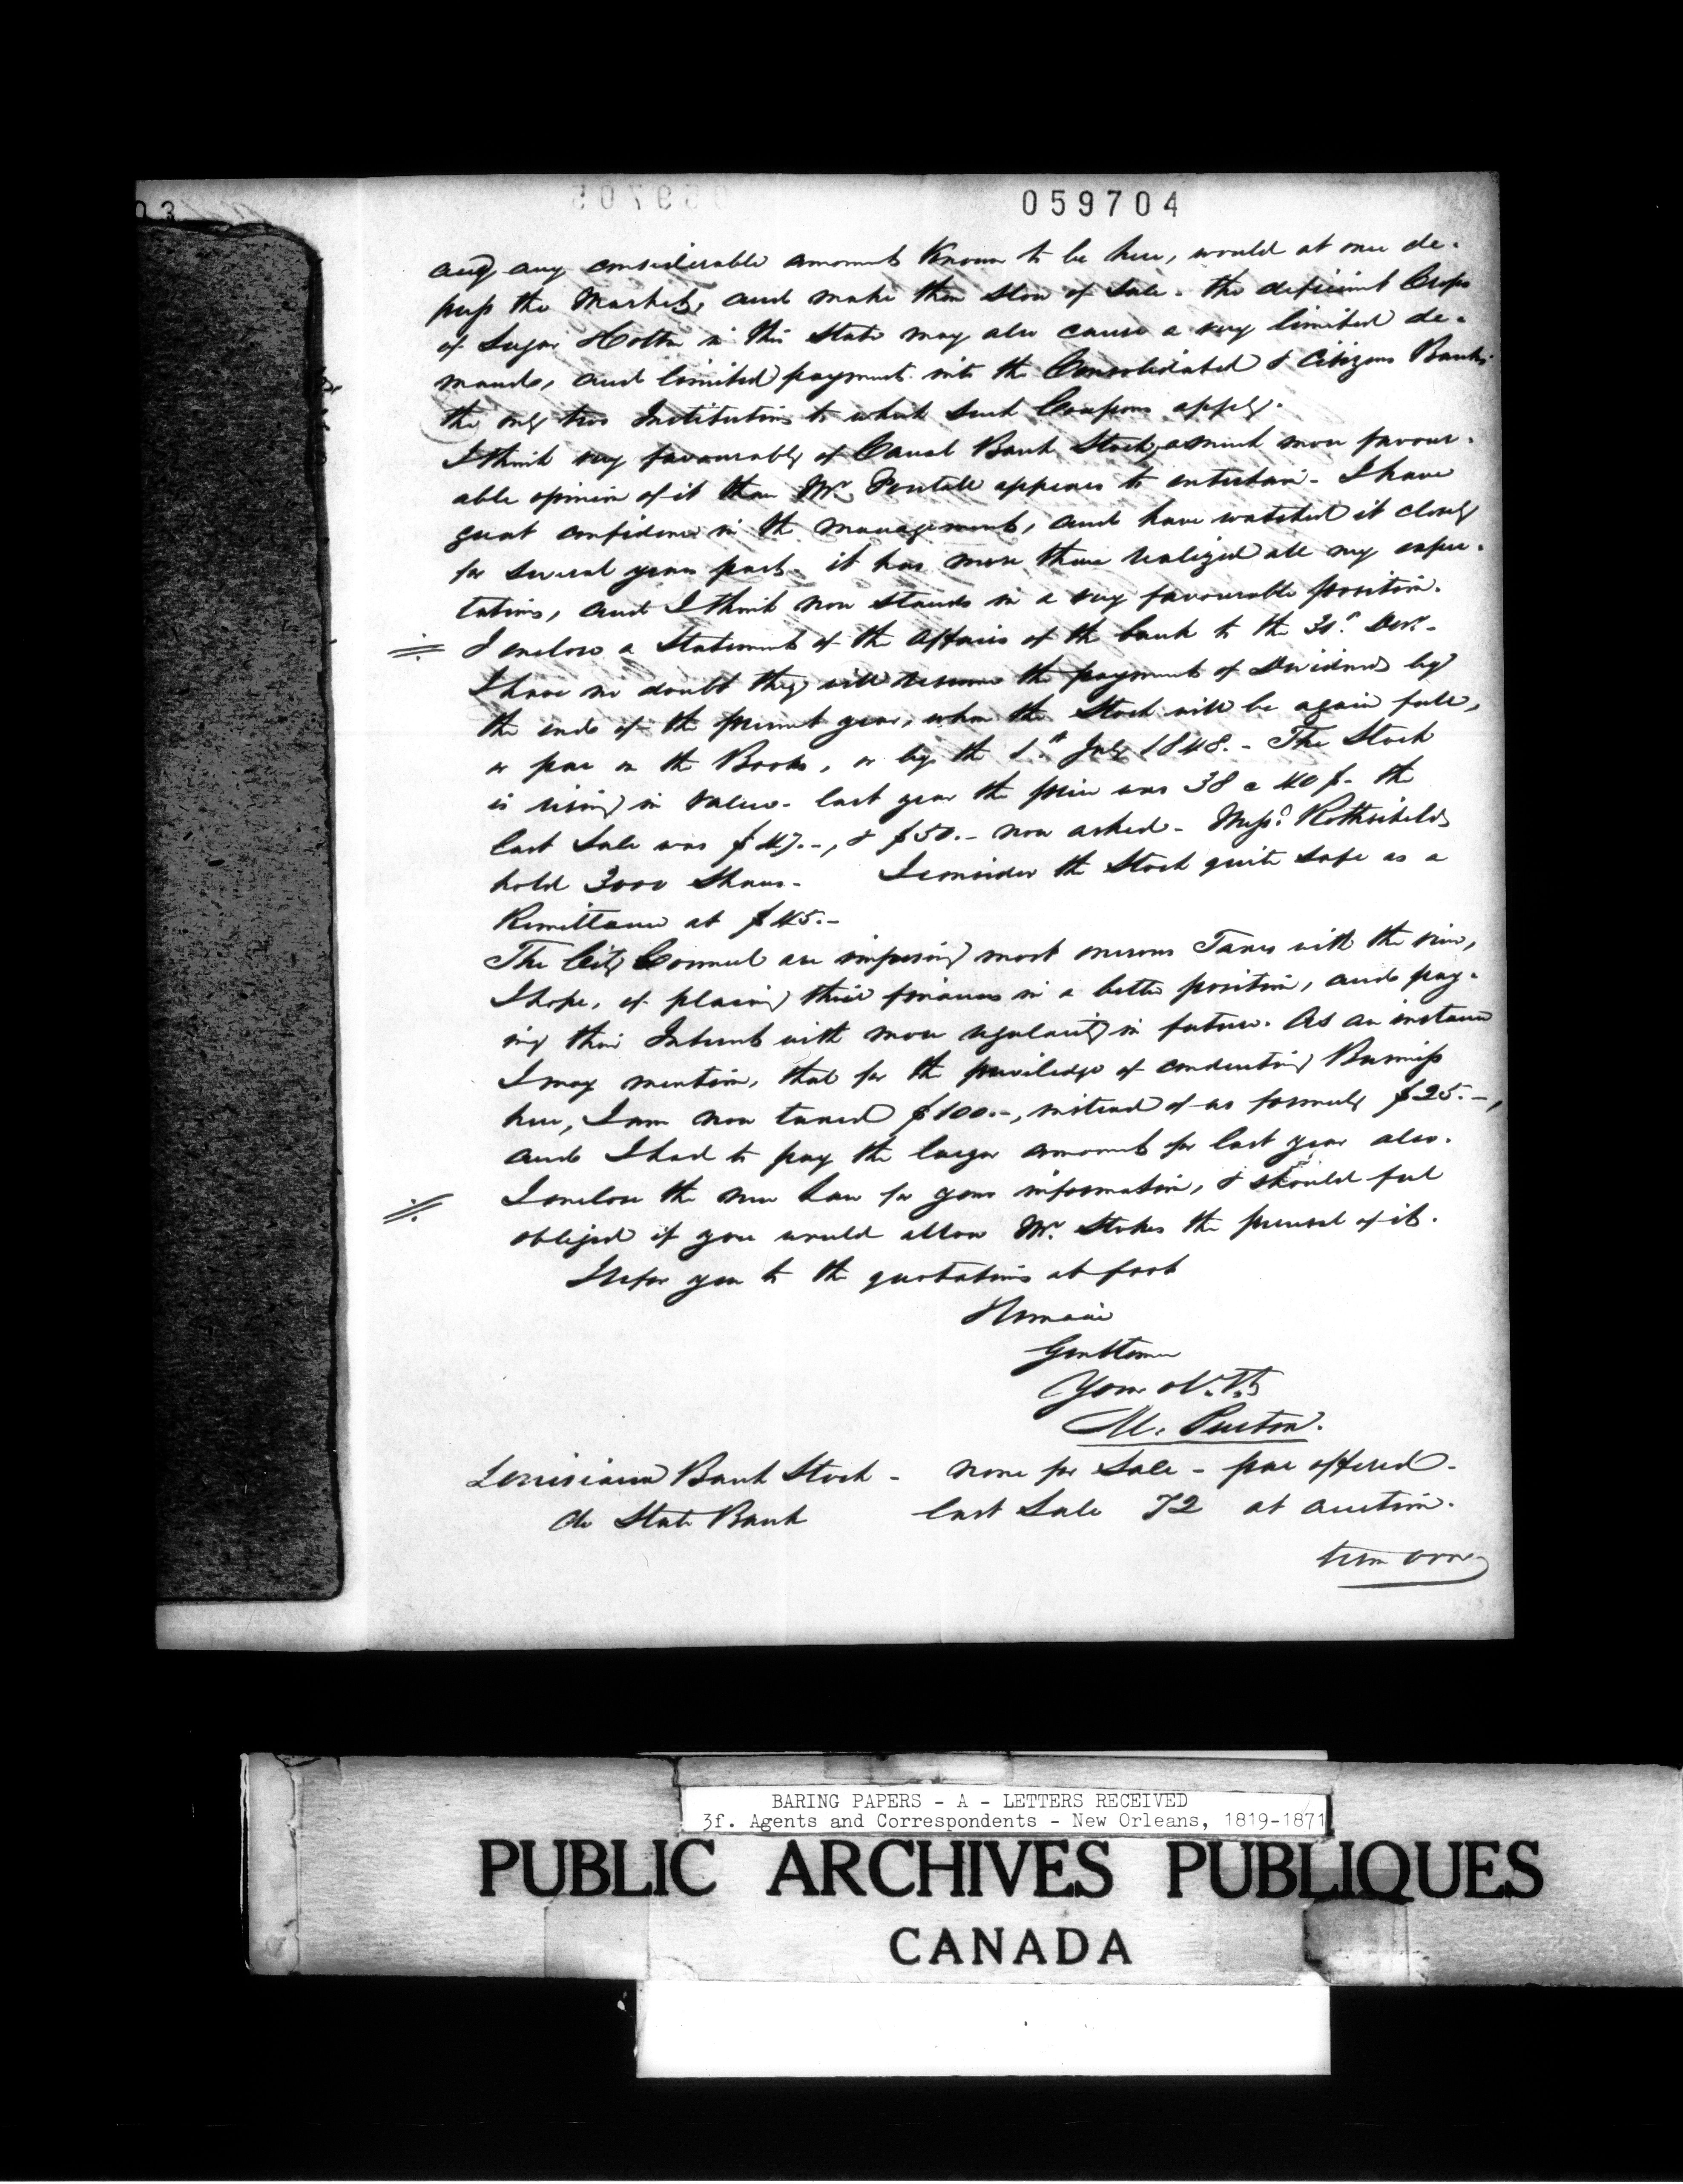 059704
and any considerable amount known to be here, would at once de-
press the Market, and make them slow of Sale. the deficient Crops
of Sugar & Cotton in this State may also cause a very limited de-
mand, and limited payment into the Consolidated & Citizens Banks
the only two Institutions to which such Coupons apply.
I think very favourably of Canal Bank Stock, a much more favour-
able opinion of it than Mr. appears to entertain. I have
great confidence in the management, and have watched it closely
for several years past. it has more than realized all my expec-
tations, and I think now stands in a very favourable position.
I enclose a Statement of the Affairs of the bank to the 31st Decr.
I have no doubt they will resume the payment of Dividends by
the end of the present year, when the Stock will be again full,
or par in the Books, or by the 1st July 1848. - The Stock
is rising in value. last year the price was 38 a 40 $. the
last Sale was $47.-, & $50.- now asked. Messrs Rothschilds
hold 3000 Shares. I consider the Stock quite safe as a
Remittance at $45.-
The City Council are imposing most onerous Taxes with the view,
I hope, of placing their finances in a better position, and pay-
ing their Interest with more regularity in future. As an instance
I may mention, that for the priviledge of conducting Business
here, I am now taxed $100.-, instead of as formerly $25.-,
and I had to pay the larger amount for last year also.
I enclose the new Law for your information, & should feel
obliged if you would allow Mr. Stokes the perusal of it.
I refer you to the quotations at foot
I remain
Gentlemen
Your Ob. St.
M.
Louisiana Bank Stock - none for Sale - par offered -
do State Bank last Sale 72 at auction.
turn over
BARING PAPERS - A - LETTERS RECEIVED
3f. Agents and Correspondents - New Orleans, 1819-1871
PUBLIC ARCHIVES PUBLIQUES
CANADA